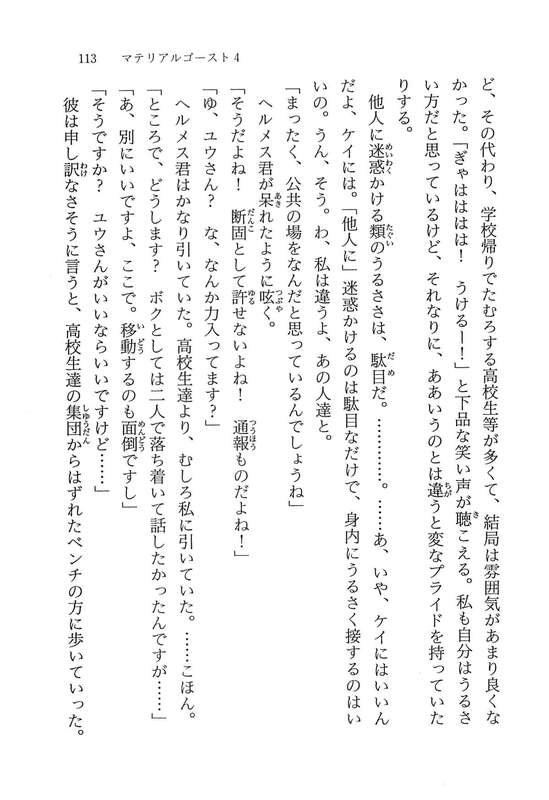 113　マテリアルゴースト4
ど、その代わり、学校帰りでたむろする高校生等が多くて、結局は雰囲気があまり良くな
かった。「ぎゃはははは！　うけるー！」と下品な笑い声が聴こえる。私も自分はうるさ
い方だと思っているけど、それなりに、ああいうのとは違うと変なプライドを持っていた
りする。
　他人に迷惑かける類のうるささは、駄目だ。…………。……あ、いや、ケイにはいいん
だよ、ケイには。「他人に」迷惑かけるのは駄目なだけで、身内にうるさく接するのはい
いの。うん、そう。わ、私は違うよ、あの人達と。
「まったく、公共の場をなんだと思っているんでしょうね」
　ヘルメス君が呆れたように呟く。
「そうだよね！　断固として許せないよね！　通報ものだよね！」
「ゆ、ユウさん？　な、なんか力入ってます？」
　ヘルメス君はかなり引いていた。高校生達より、むしろ私に引いていた。……こほん。
「ところで、どうします？　ボクとしては二人で落ち着いて話したかったんですが……」
「あ、別にいいですよ、ここで。移動するのも面倒ですし」
「そうですか？　ユウさんがいいならいいですけど……」
　彼は申し訳なさそうに言うと、高校生達の集団からはずれたベンチの方に歩いていった。